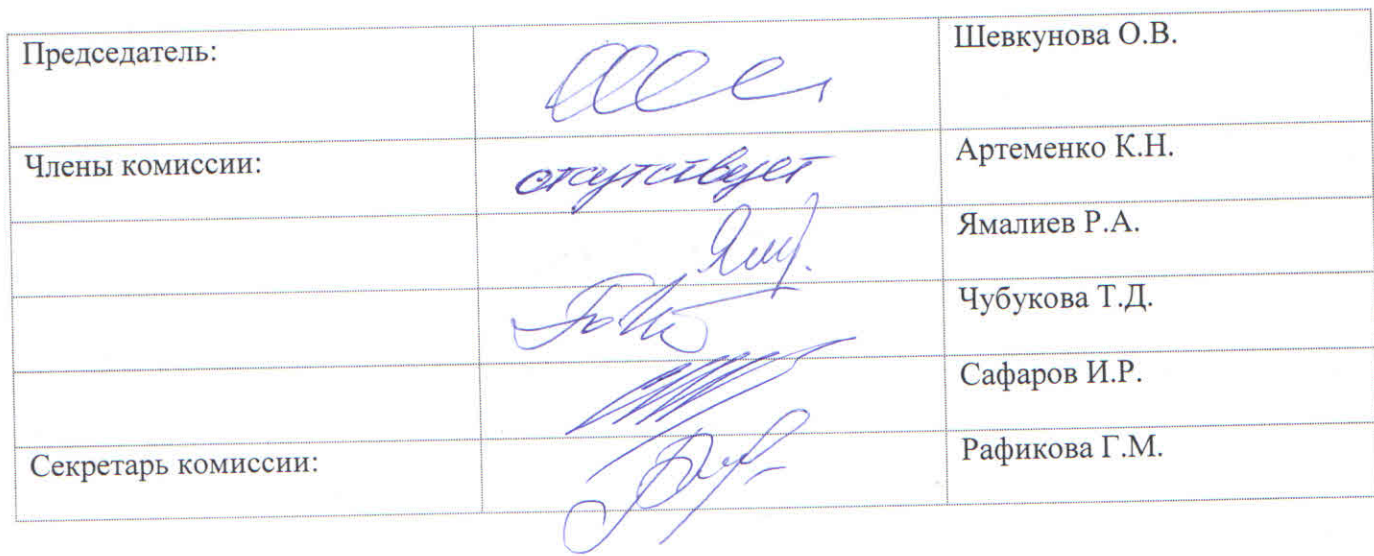 Председатель: Шевкунова О.В.
Члены комиссии: отсутствует Артеменко К.Н.
Ямалиев Р.А.
Чубукова Т.Д.
Сафаров И.Р.
Секретарь комиссии: Рафикова Г.М.